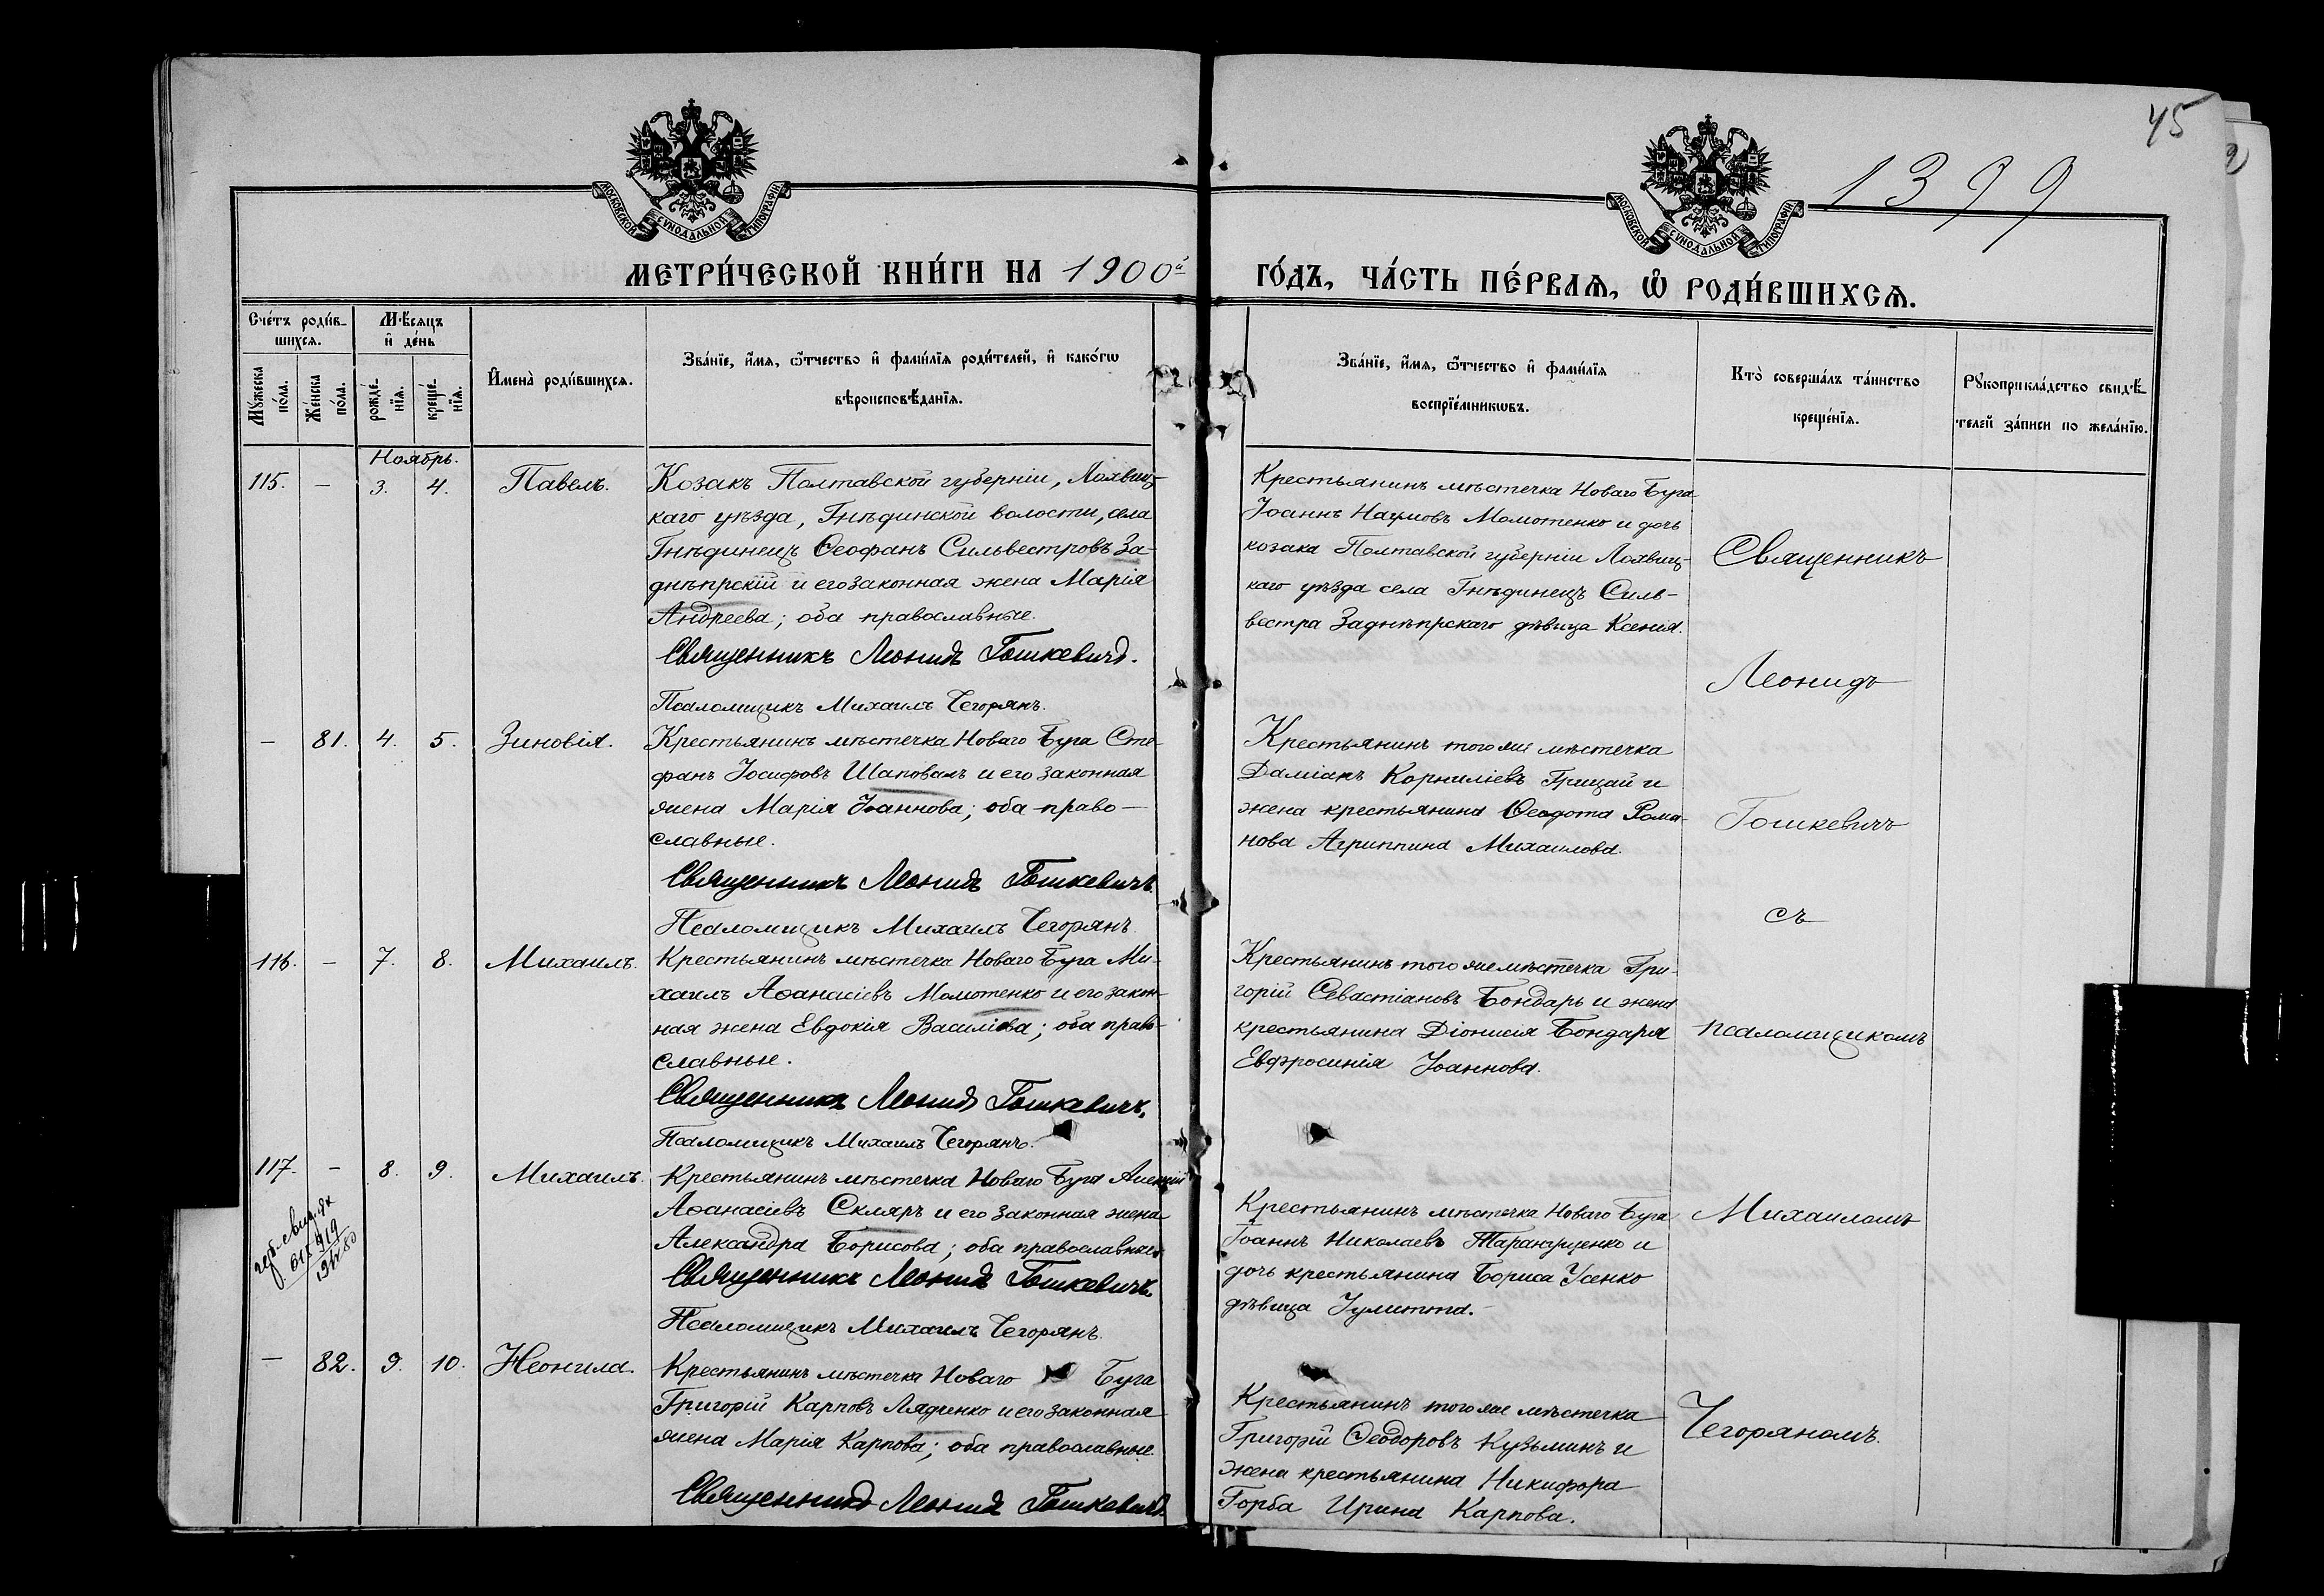 45
1399
МОСКОВСКОЙ СѴНОДАЛЬНОЙ ТИПОГРАФІИ
МОСКОВСКОЙ СѴНОДАЛЬНОЙ ТИПОГРАФІИ
МЕТРИ́ЧЕСКОЙ КНИ́ГИ НА 1900й
ГО́ДЪ, ЧА́СТЬ ПЕ́РВАѦ, Ѡ҆ РОДИ́ВШИХСѦ.
Сче́тъ роди́в-
шихсѧ.
Мѣ́сѧцъ
и҆ де́нь
Мꙋ́жеска
по́ла.
Же́нска
по́ла.
рожде́-
нїѧ.
креще́-
нїѧ.
И҆мена̀ роди́вшихсѧ.
Зва́нїе, и҆́мѧ, ѻ҆́тчество и҆ фами́лїѧ роди́телей, и҆ како́гѡ
вѣроисповѣ́данїѧ.
Зва́нїе, и҆́мѧ, ѻ҆́тчество и҆ фами́лїѧ
воспрїе́мникѡвъ.
Кто̀ соверша́лъ та́инство
креще́нїѧ.
Рꙋкоприкла́дство свидѣ́-
телей за́писи по жела́нїю.
Ноябрь.
115. — 3. 4. Павелъ.
Козакъ Полтавской губерніи, Лохвиц-
каго уѣзда, Гнѣдинской волости, села
Гнѣдинецъ Ѳеофанъ Сильвестровъ За-
днѣпрскій и его законная жена Марія
Андреева; оба православные.
Священникъ Леонидъ Гошкевичъ.
Псаломщикъ Михаилъ Чегорянъ.
Крестьянинъ мѣстечка Новаго Буга
Іоаннъ Наумовъ Момотенко и дочь
козака Полтавской губерніи Лохвиц-
каго уѣзда села Гнѣдинецъ Силь-
вестра Заднѣпрскаго дѣвица Ксенія.
— 81. 4. 5. Зиновія.
Крестьянинъ мѣстечка Новаго Буга Сте-
фанъ Іосифовъ Шаповалъ и его законная
жена Марія Іоаннова; оба право-
славные.
Священникъ Леонидъ Гошкевичъ.
Псаломщикъ Михаилъ Чегорянъ.
Крестьянинъ того же мѣстечка
Даміанъ Корниліевъ Грицай и
жена крестьянина Ѳеодота Рома-
нова Агриппина Михаилова.
116. — 7. 8. Михаилъ.
Крестьянинъ мѣстечка Новаго Буга Ми-
хаилъ Аѳанасіевъ Момотенко и его закон-
ная жена Евдокія Василіева; оба право-
славные.
Священникъ Леонидъ Гошкевичъ.
Псаломщикъ Михаилъ Чегорянъ.
Крестьянинъ того же мѣстечка Гри-
горій Севастіановъ Бондарь и жена
крестьянина Діонисія Бондаря
Евфросинія Іоаннова.
117. — 8. 9. Михаилъ.
Крестьянинъ мѣстечка Новаго Буга Алексій
Аѳанасіевъ Скляръ и его законная жена
Александра Борисова; оба православные
Священникъ Леонидъ Гошкевичъ.
Псаломщикъ Михаилъ Чегорянъ.
Крестьянинъ мѣстечка Новаго Буга
Іоаннъ Николаевъ Таранущенко и
дочь крестьянина Бориса Усенко
дѣвица Іулитта.
— 82. 9. 10. Неонила.
Крестьянинъ мѣстечка Новаго Буга
Григорій Карповъ Ляденко и его законная
жена Марія Карпова; оба православные.
Священникъ Леонидъ Гошкевичъ.
Крестьянинъ того же мѣстечка
Григорій Ѳеодоровъ Кузьминъ и
жена крестьянина Никифора
Горба Ирина Карпова.
Священникъ
Леонидъ
Гошкевичъ
съ
псаломщикомъ
Михаиломъ
Чегоряномъ.